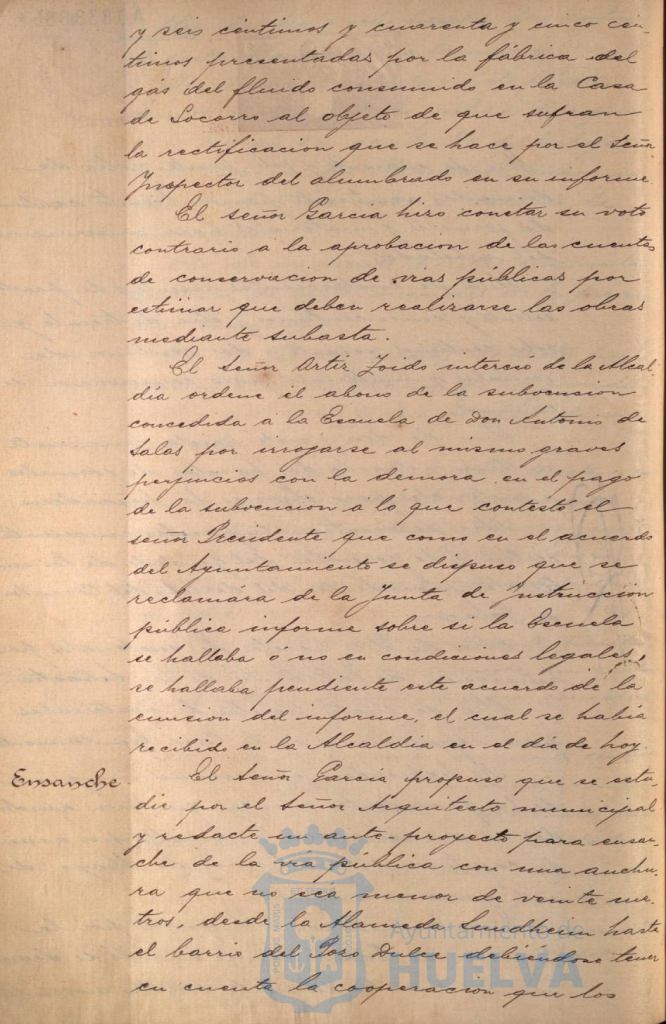 y seis céntimos y cuarenta y cinco cén-
timos presentadas por la fábrica del
gás del fluido consumido en la Casa
de Socorro al objeto de que sufran
la rectificacion que se hace por el Señor
Inspector del alumbrado en su informe.
El Señor Garcia hizo constar su voto
contrario á la aprobacion de las cuentas
de conservacion de vias públicas por
estimar que deben realizarse las obras
mediante subasta.
El Señor Ortiz Joido interesó de la Alcal-
dia ordene el abono de la subvencion
concedida á la Escuela de Don Antonio de
Salas por irrogarse al mismo graves
perjuicios con la demora en el pago
de la subvencion á lo que contestó el
señor Presidente que como en el acuerdo
del Ayuntamiento se dispuso que se
reclamára de la Junta de Instruccion
pública informe sobre si la Escuela
se hallaba ó no en condiciones legales,
se hallaba pendiente este acuerdo de la
emision del informe, el cual se habia
recibido en la Alcaldia en el dia de hoy.
Ensanche.
El Señor Garcia propuso que se estu-
die por el Señor Arquitecto municipal
y redacte un ante-proyecto para ensan-
che de la via pública con una anchu-
ra que no sea menor de veinte me-
tros, desde la Alameda Sundheim hasta
el barrio del Pozo Dulce debiéndose tener
en cuenta la cooperacion que los
Ayuntamiento de
HUELVA